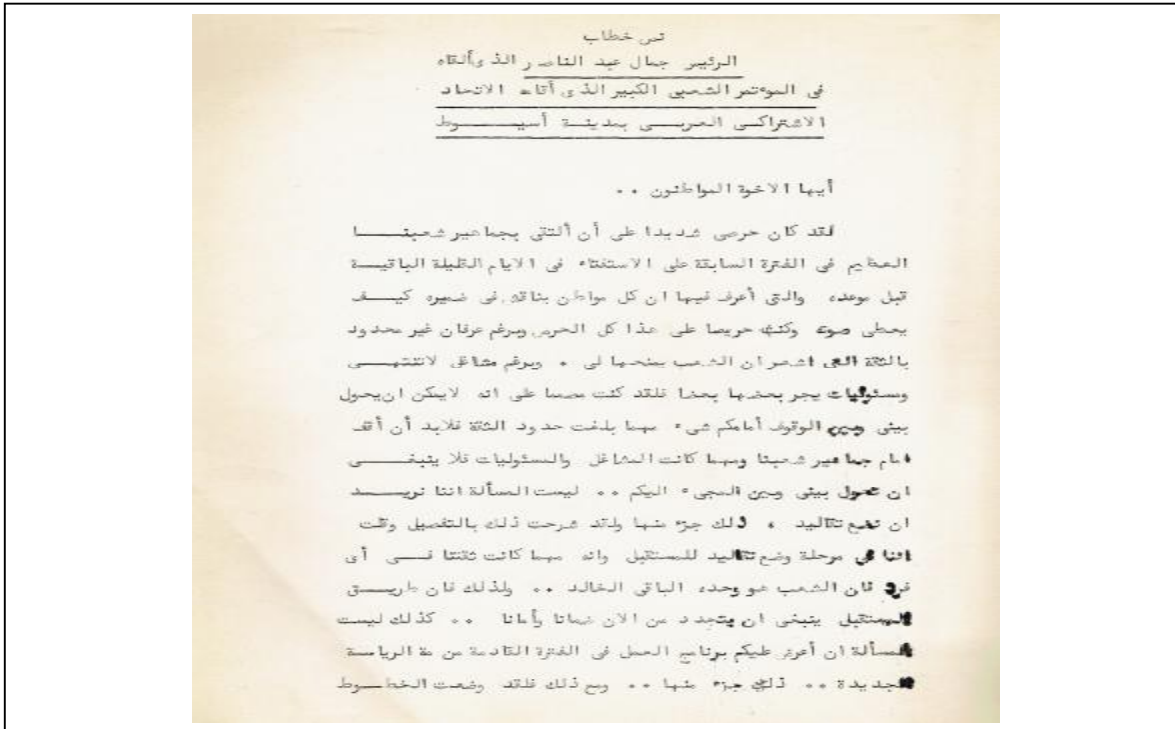 نص خطاب
الرئيس جمال عبد الناصر الذى ألقاه
فى المؤتمر الشعبى الكبير الذى أقامه الاتحاد
الاشتراكى العربى بمدينة أسيوط
أيها الاخوة المواطنون ..
لقد كان حرصى شديدا على أن ألتقى بجماهير شعبنا
العظيم فى الفترة السابقة على الاستفتاء فى الايام القليلة الباقية
قبل موعده والتى أعرف فيها ان كل مواطن يناقش فى ضميره كيف
يعطى صوته وكنت حريصا على هذا كل الحرص وبرغم عرفان غير محدود
بالثقة التى اشعر ان الشعب يمنحها لى . وبرغم مشاغل لاتنتهى
ومسئوليات يجر بعضها بعضا فلقد كنت مصمما على انه لايمكن ان يحول
بينى وبين الوقوف أمامكم شىء مهما بلغت حدود الثقة فلابد أن أقف
امام جماهير شعبنا ومهما كانت المشاغل والمسئوليات فلا ينبغى
ان تحول بينى وبين المجىء اليكم .. ليست المسألة اننا نريد
ان نضع تقاليد ، ذلك جزء منها ولقد شرحت ذلك بالتفصيل وقلت
اننا فى مرحلة وضع تقاليد للمستقبل وانه مهما كانت ثقتنا فى أى
فرد فان الشعب هو وحده الباقى الخالد .. ولذلك فان طريق
المستقبل ينبغى ان يتحدد من الان ضمانا وأمانا .. كذلك ليست
المسألة ان أعرض عليكم برنامج العمل فى الفترة القادمة من مدة الرياسة
الجديدة .. ذلك جزء منها .. ومع ذلك فلقد وضعت الخطوط